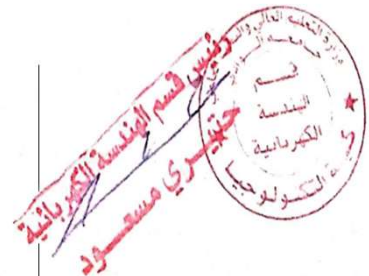 رئيس قسم الهندسة الكهربائية
حتيري مسعود
وزارة التعليم العالي و
جامعة
قسم
الهندسة
الكهربائية
كلية التكنولوجيا